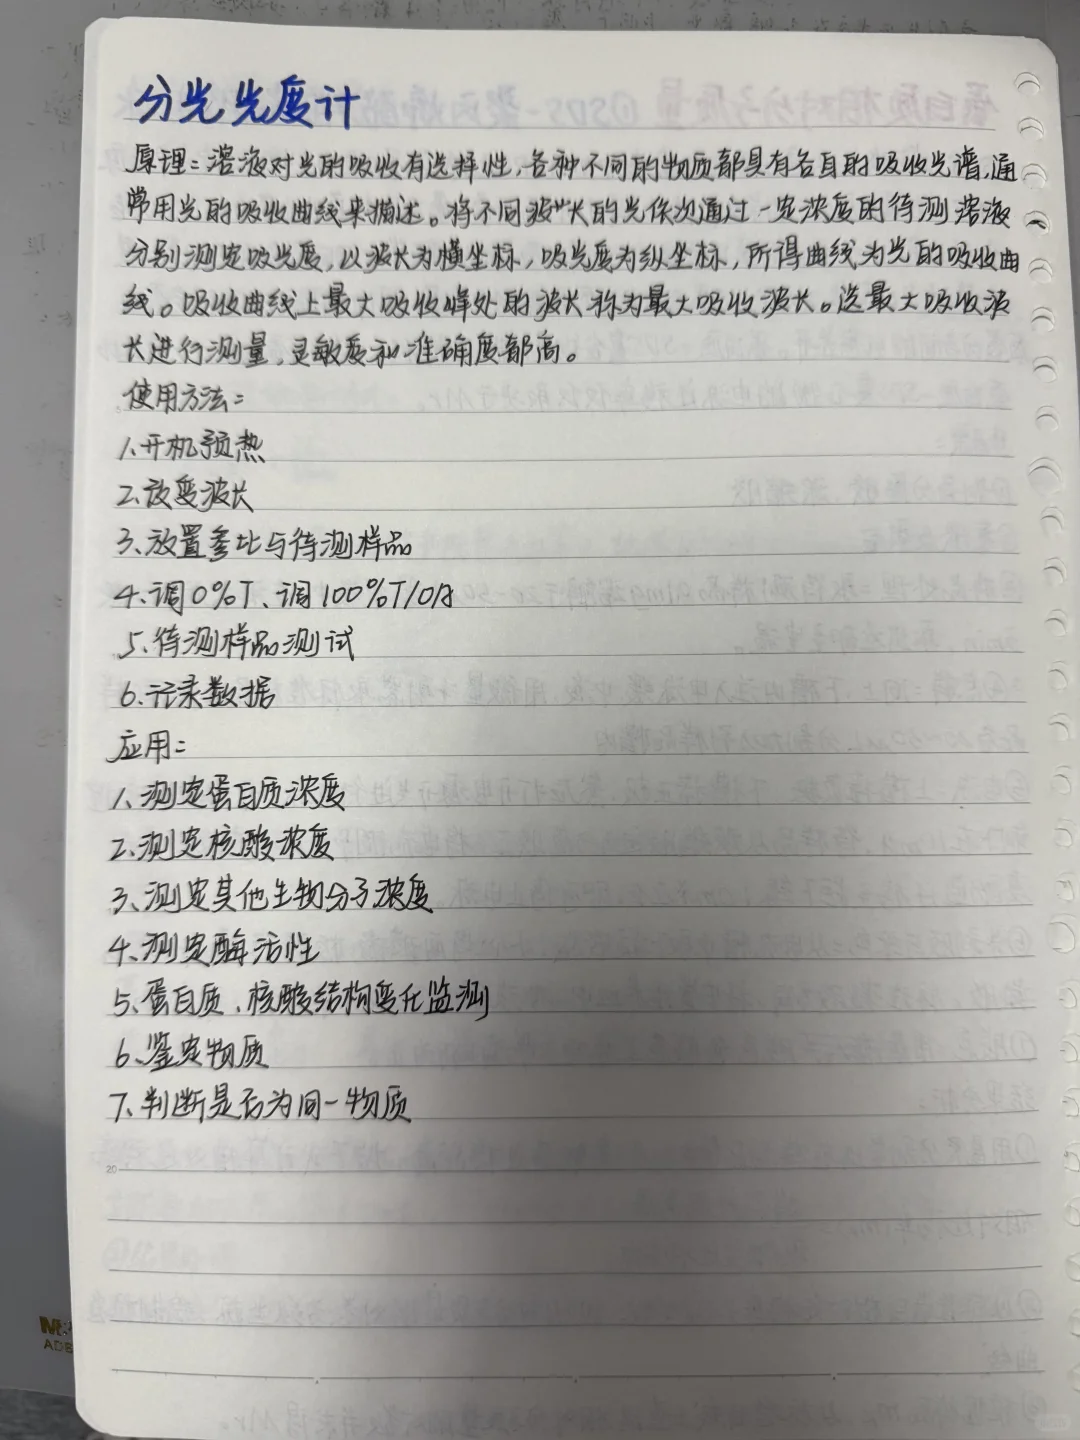 分光光度计
原理：溶液对光的吸收有选择性，各种不同的物质都具有各自的吸收光谱，通
常用光的吸收曲线来描述。将不同波长的光依次通过一定浓度的待测溶液
分别测定吸光度，以波长为横坐标，吸光度为纵坐标，所得曲线为光的吸收曲
线。吸收曲线上最大吸收峰处的波长称为最大吸收波长。选最大吸收波
长进行测量，灵敏度和准确度都高。
使用方法：
1、开机预热
2、改变波长
3、放置参比与待测样品
4、调0%T、调100%T/0A
5、待测样品测试
6、记录数据
应用：
1、测定蛋白质浓度
2、测定核酸浓度
3、测定其他生物分子浓度
4、测定酶活性
5、蛋白质、核酸结构变化监测
6、鉴定物质
7、判断是否为同一物质
20